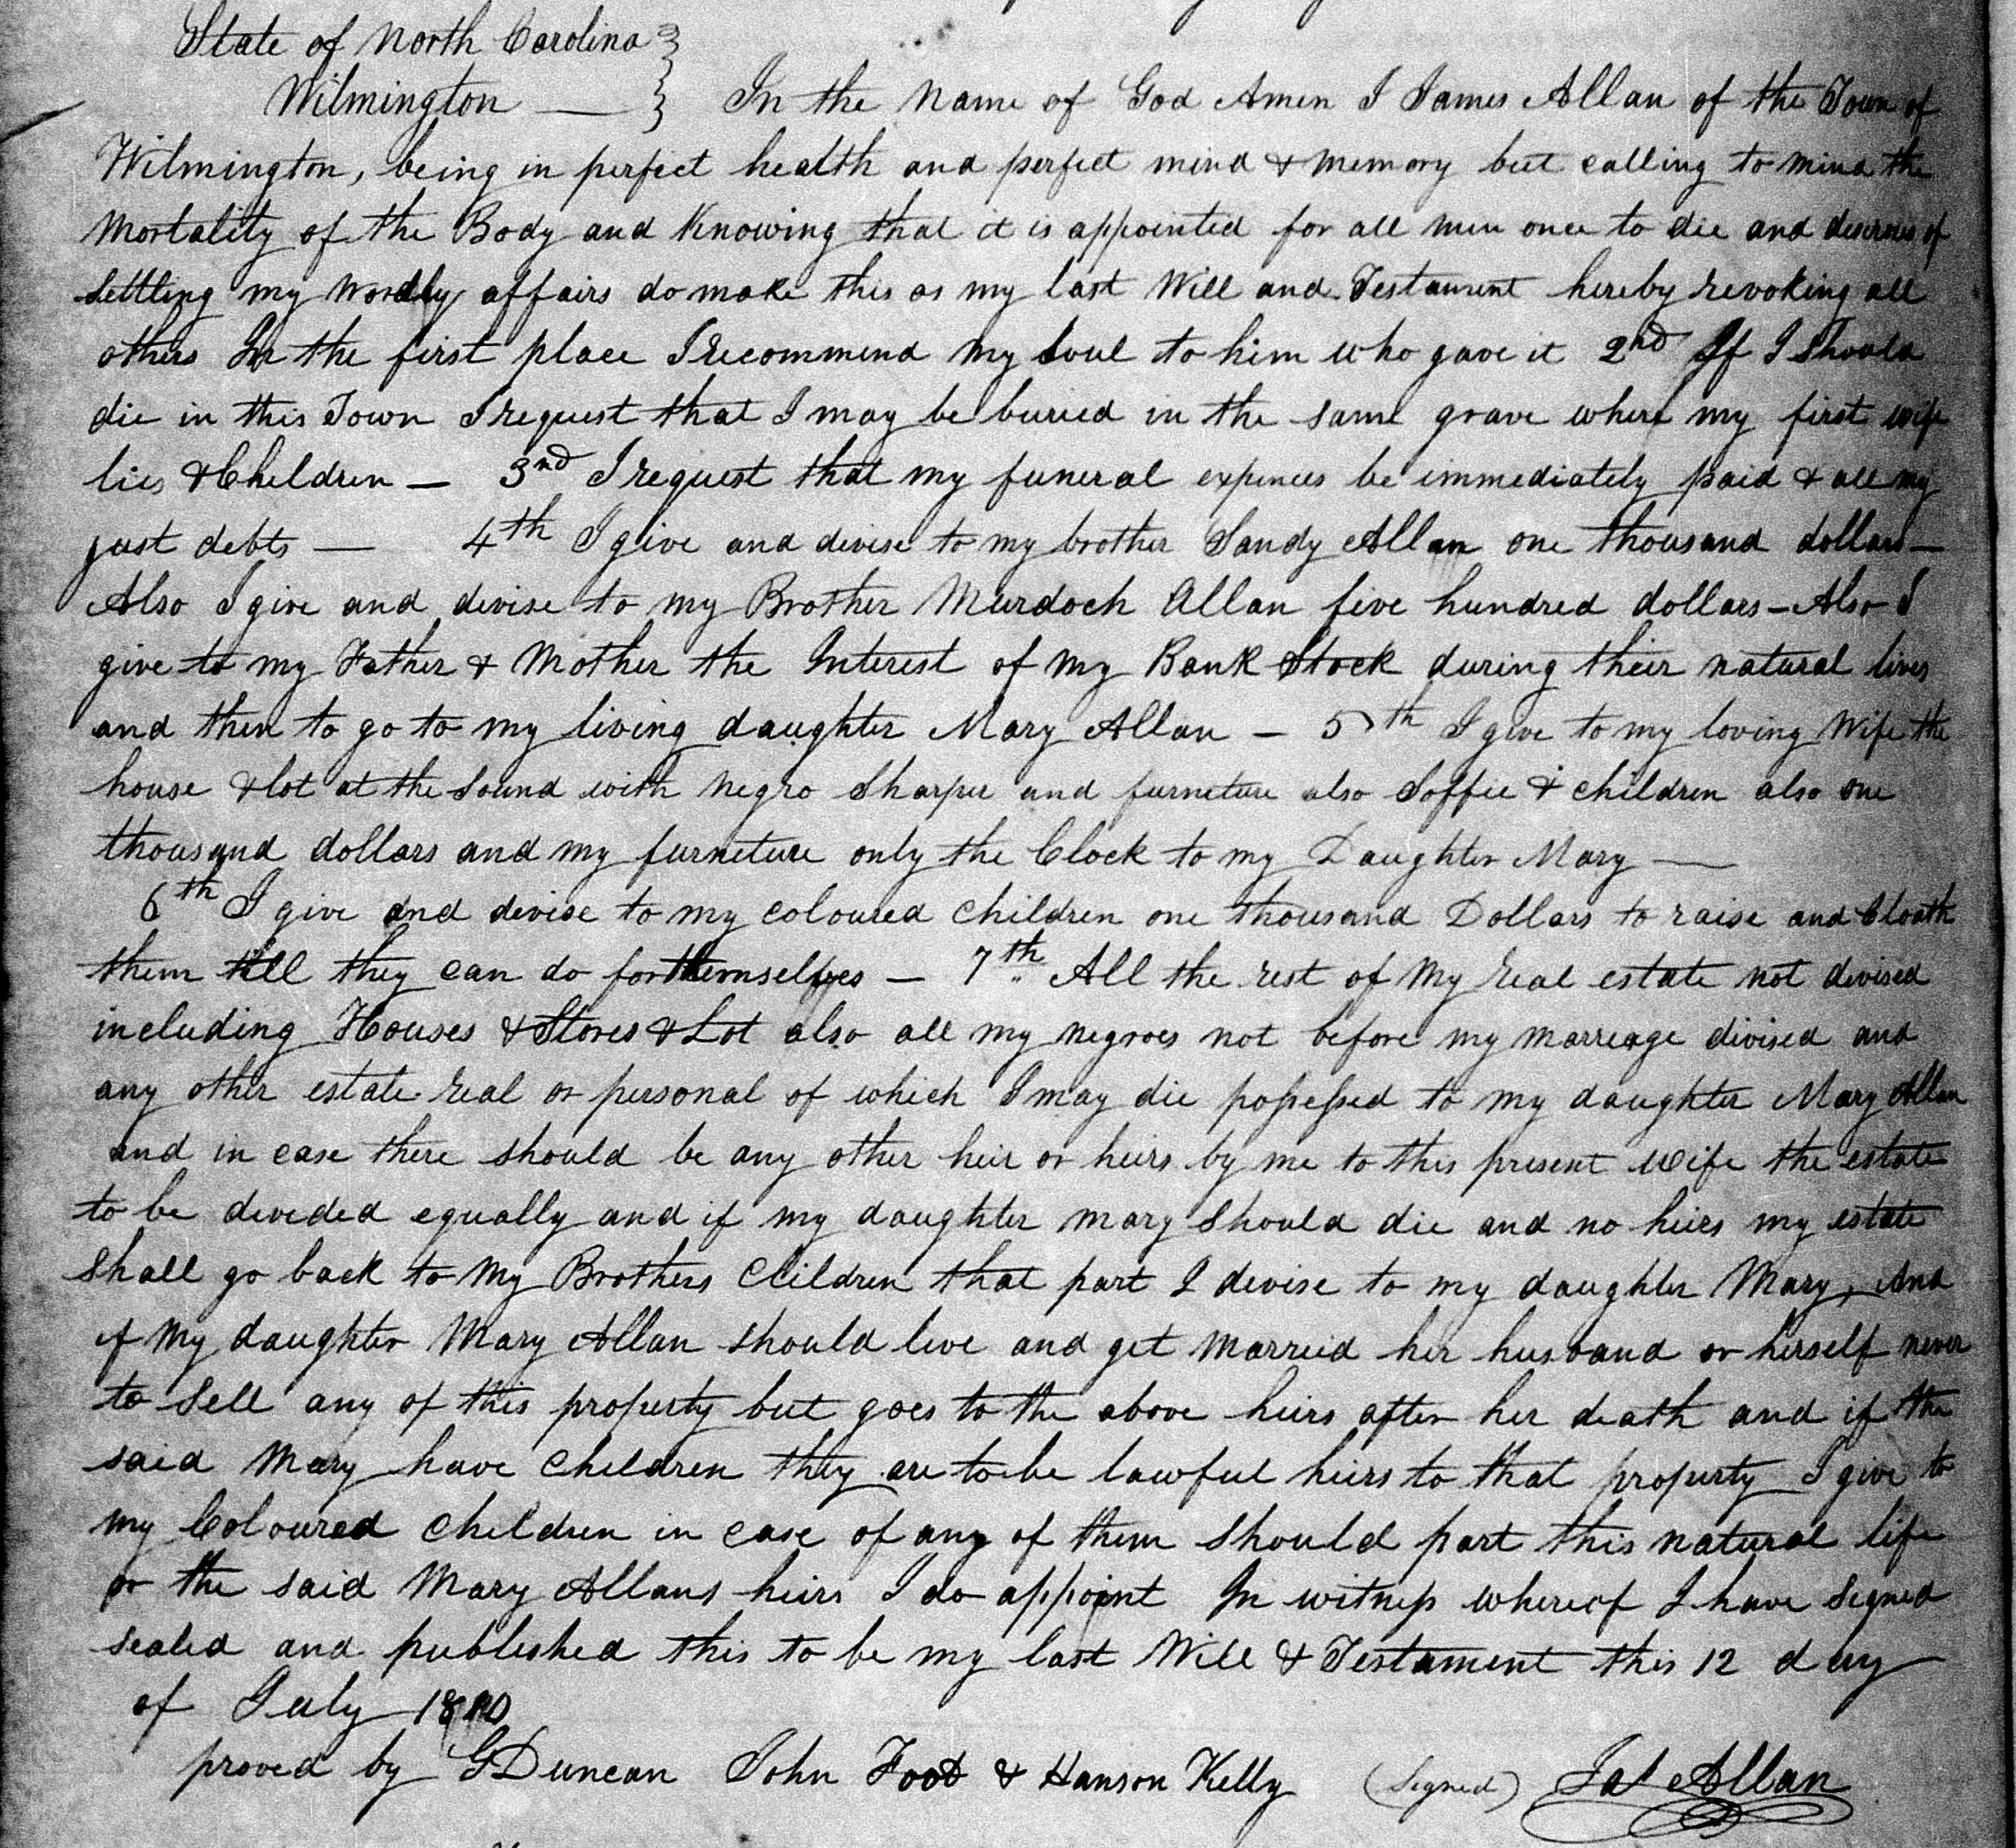 State of North Carolina }
Wilmington — } In the Name of God Amen I James Allan of the Town of
Wilmington, being in perfect health and perfect mind & memory but calling to mind the
Mortality of the Body and Knowing that it is appointed for all men once to die and desirous of
settling my wordly affairs do make this as my last Will and Testament hereby revoking all
others In the first place I recommend my soul to him who gave it 2nd If I should
die in this Town I request that I may be buried in the same grave where my first wife
lies & Children — 3nd I request that my funeral expences be immediately paid & all my
just debts — 4th I give and devise to my brother Sandy Allan one thousand dollars —
Also I give and devise to my Brother Murdoch Allan five hundred dollars — Also I
give to my Father & Mother the Interest of my Bank Stock during their natural lives
and then to go to my living daughter Mary Allan — 5th I give to my loving Wife the
house & lot at the Sound with negro Sharper and furneture also Soffie & children also one
thousand dollars and my furneture only the Clock to my Daughter Mary —
6th I give and devise to my coloured children one thousand Dollars to raise and Cloath
them till they can do for themselves — 7th All the rest of my real estate not devised
including Houses & Stores & Lot also all my negroes not before my marreage divised and
any other estate real or personal of which I may die possessed to my daughter Mary Allan
and in case there should be any other heir or heirs by me to this present wife the estate
to be devided equally and if my daughter mary should die and no heirs my estate
shall go back to my Brothers Children that part I devise to my daughter Mary, And
if my daughter Mary Allan should live and get marreid her husband or herself never
to sell any of this property but goes to the above heirs after her death and if the
said Mary have children they are to be lawful heirs to that property I give to
my Coloured children in case of any of them should part this natural life
or the said Mary Allans heirs I do appoint In witness whereof I have signed
sealed and published this to be my last Will & Testament this 12 day
of July
proved by G Duncan John Foot & Hanson Kelly (Signed) Jas Allan